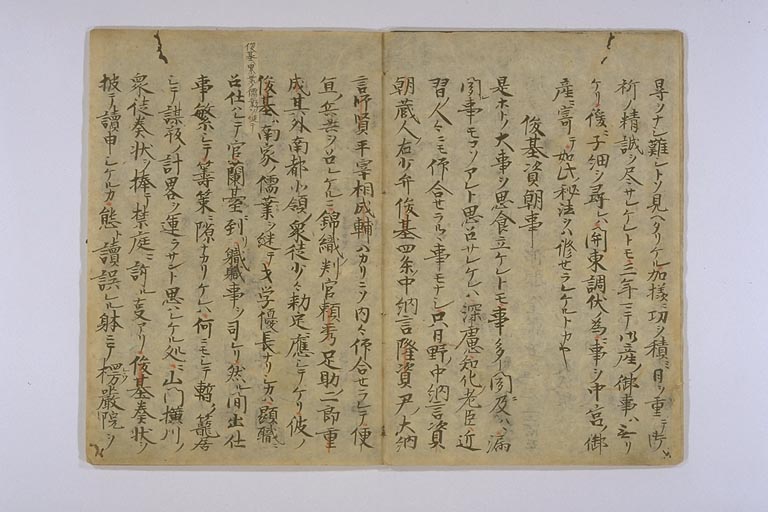 尋ソナシ難シトソ見ヘタリケル加様ニ功ヲ積ミ日ヲ重テ御
祈ノ精誠ヲ尽サレケレトモ三年ニテ御産ノ御事ハ無リ
ケリ後ニ子細ヲ尋レハ関東調伏ノ為ニ事ヲ中宮ノ御
産ニ寄テ如此秘法ヲハ修セラレケルトカヤ
俊基資朝事
是ホトノ大事ヲ思食立ケレトモ事多ク聞及ハ漏
聞事モコソアレト思召サレケレハ深慮知化ノ老臣ハ近
習ノ人々ニモ仰合セラルヽ事モナシ只日野中納言資
朝蔵人右少弁俊基四条中納言隆資尹大納
言師賢平宰相成輔ハカリニソ内々仰合セラレテ便
宜ノ兵共ヲ召レケルニ錦織判官頼秀足助二郎重
成其外南都北嶺ノ衆徒少々勅定ニ應シテケリ彼ノ
俊基ハ南家ノ儒業ヲ継テ才学優長ナリシカハ顕職ニ
召仕ハレテ官蘭臺ニ到リ職々事ヲ司レリ然ル間出仕
事繁シテ籌策ニ隙ナカリケレハ何ニモシテ暫ク篭居
シテ謀叛ノ計畧ヲ運ラサント思ハレケル処ニ山門横川ノ
衆徒奏状ヲ捧テ禁庭ニ訴ル事アリ俊基奏状ヲ
披テ讀申レケルカ態ト讀誤レル躰ニテ楞嚴院ヲ